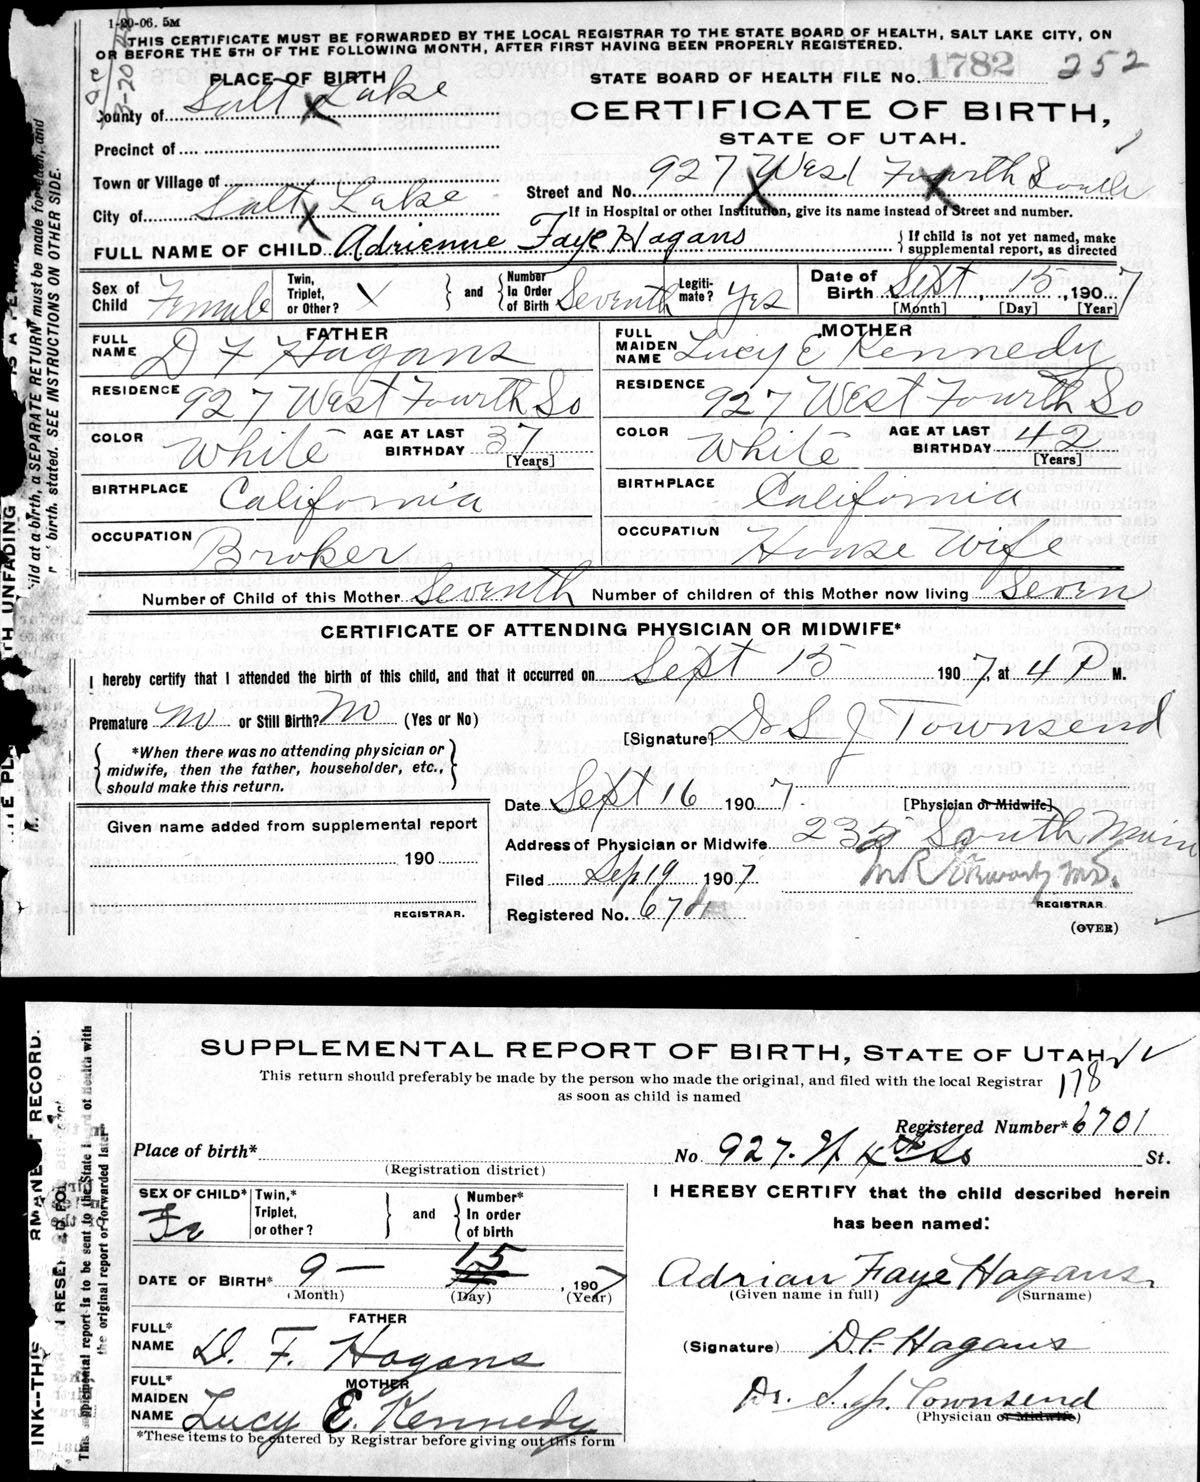 1-20-06. 5M
THIS CERTIFICATE MUST BE FORWARDED BY THE LOCAL REGISTRAR TO THE STATE BOARD OF HEALTH, SALT LAKE CITY, ON
OR BEFORE THE 5TH OF THE FOLLOWING MONTH, AFTER FIRST HAVING BEEN PROPERLY REGISTERED.
PLACE OF BIRTH STATE BOARD OF HEALTH FILE No. 1782 252
County of Salt Lake CERTIFICATE OF BIRTH,
STATE OF UTAH.
Precinct of
Town or Village of Street and No. 927 West Fourth South
City of Salt Lake If in Hospital or other Institution, give its name instead of Street and number.
FULL NAME OF CHILD Adrienne Faye Hagans { If child is not yet named, make supplemental report, as directed
Sex of Child Female Twin, Triplet, or Other? X } and { Number In Order of Birth Seventh Legiti-mate? Yes Date of Birth Sept 15, 1907
[Month] [Day] [Year]
FATHER MOTHER
FULL NAME D F Hagans FULL MAIDEN NAME Lucy E Kennedy
RESIDENCE 927 West Fourth So RESIDENCE 927 West Fourth So
COLOR White AGE AT LAST BIRTHDAY 37 [Years] COLOR White AGE AT LAST BIRTHDAY 42 [Years]
BIRTHPLACE California BIRTHPLACE California
OCCUPATION Broker OCCUPATION House Wife
Number of Child of this Mother Seventh Number of children of this Mother now living Seven
CERTIFICATE OF ATTENDING PHYSICIAN OR MIDWIFE*
I hereby certify that I attended the birth of this child, and that it occurred on Sept 15 1907, at 4 P M.
Premature No or Still Birth? No (Yes or No)
[Signature] Dr S J Townsend
{ *When there was no attending physician or
midwife, then the father, householder, etc.,
should make this return. }
Date Sept 16 1907 [Physician or Midwife]
Given name added from supplemental report
Address of Physician or Midwife 235 South Main
190
Filed Sep 19 1907 M.D.
REGISTRAR. Registered No. 674 REGISTRAR
(OVER)
SUPPLEMENTAL REPORT OF BIRTH, STATE OF UTAH
This return should preferably be made by the person who made the original, and filed with the local Registrar 178
as soon as child is named
Registered Number* 6701
Place of birth* No 927. W 4th So St.
(Registration district)
SEX OF CHILD* Fe Twin,* Triplet, or other? } and { Number* In order of birth
I HEREBY CERTIFY that the child described herein
has been named:
DATE OF BIRTH* 9 — 15, 1907
(Month) (Day) (Year)
Adrian Faye Hagans
(Given name in full) (Surname)
FATHER
FULL* NAME D. F. Hagans
(Signature) D. F. Hagans
MOTHER
FULL* MAIDEN NAME Lucy E. Kennedy
Dr. S. J. Townsend
(Physician or Midwife)
*These items to be entered by Registrar before giving out this form
ild at a birth, a SEPARATE RETURN must be made for each, and
birth, stated. SEE INSTRUCTIONS ON OTHER SIDE.
TH UNFADING
INK--THIS
RMANENT RECORD.
This supplemental report is to be sent to the State Board of Health with
the original report or forwarded later